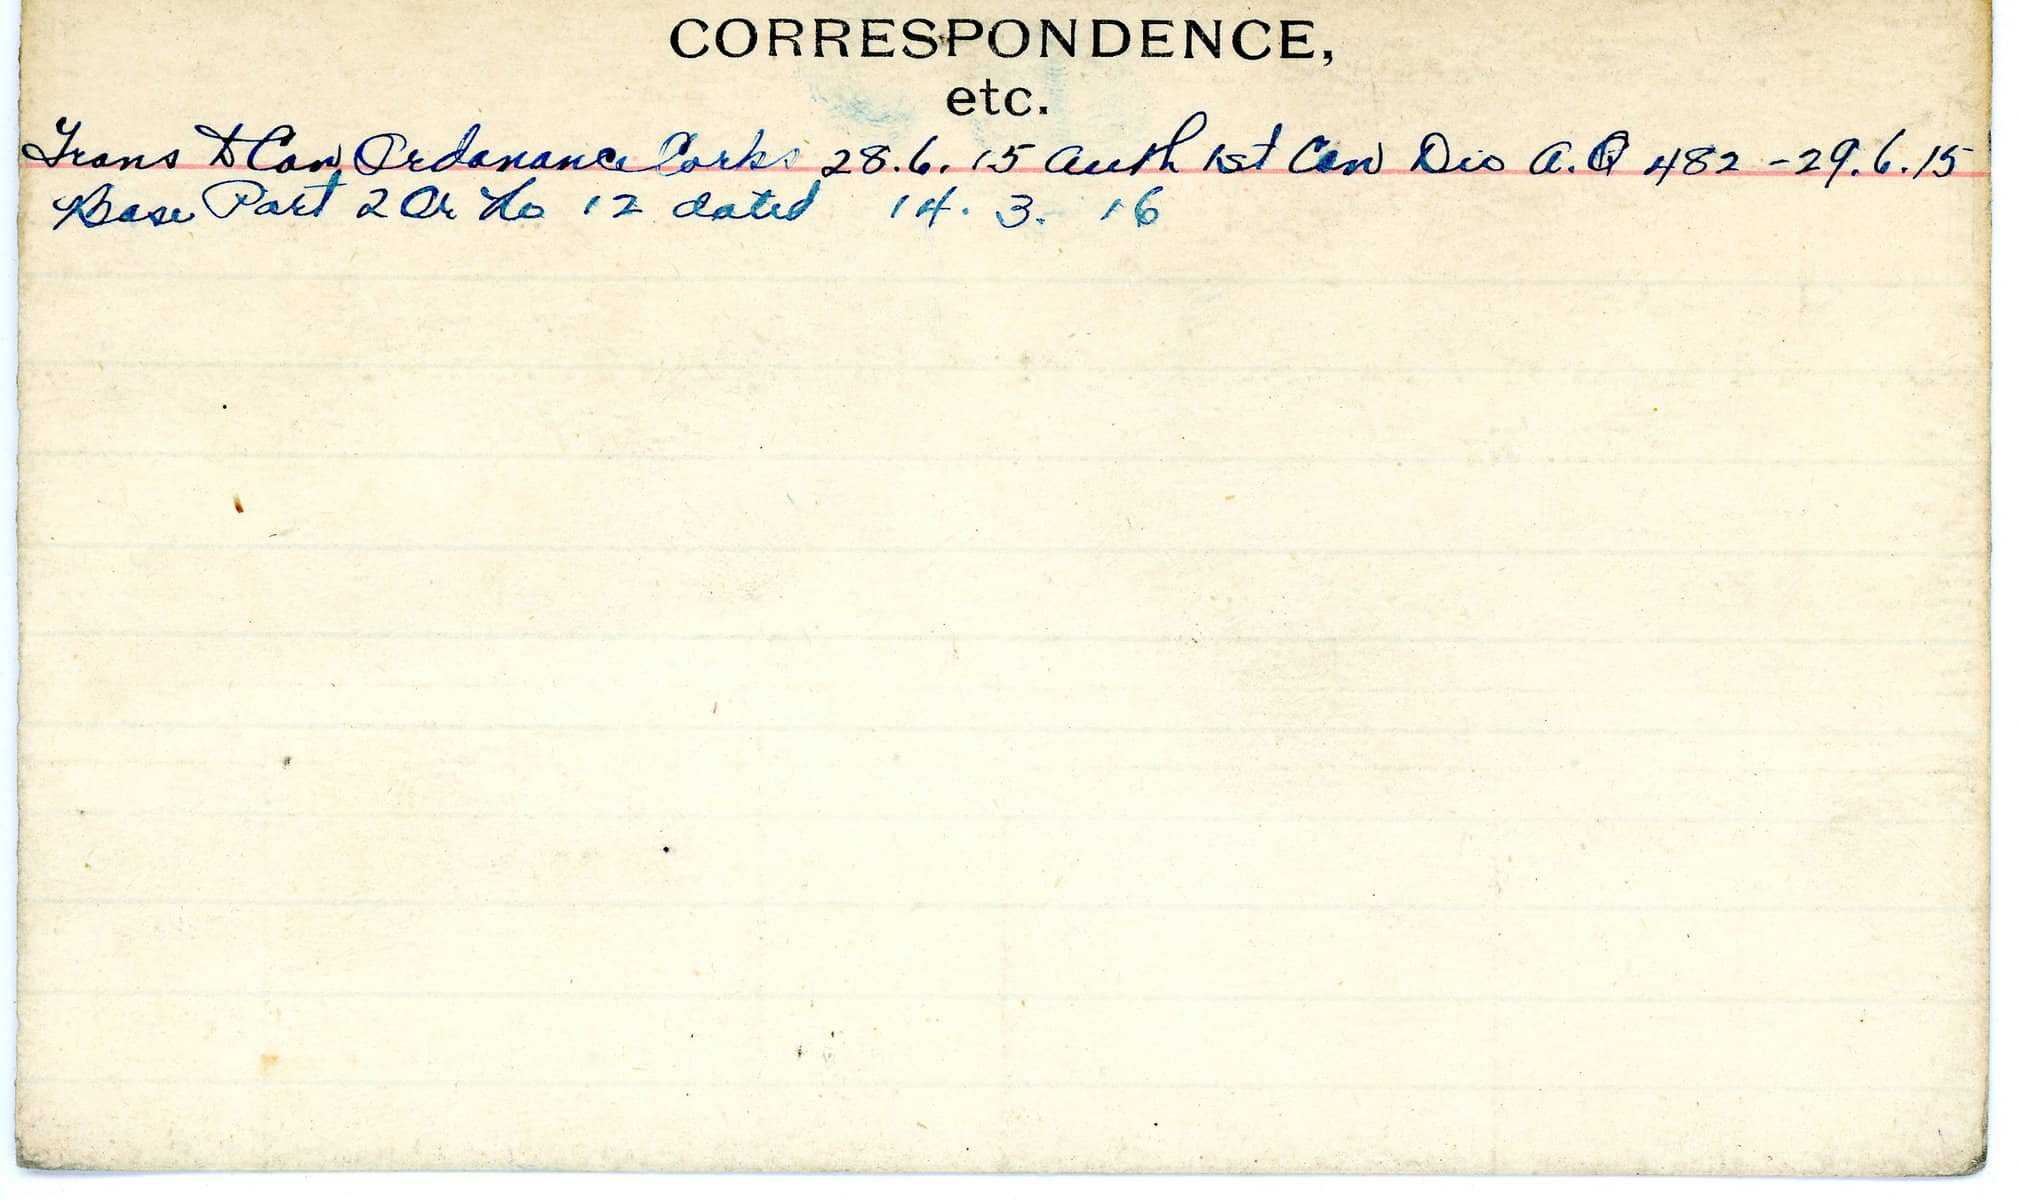 CORRESPONDENCE,
etc.
Trans to Can Ordanance Corks 28.6.15 Auth 1st Can Div A.Q 482 - 29.6.15
Base Part 2 Or No 12 dated 14. 3. 16